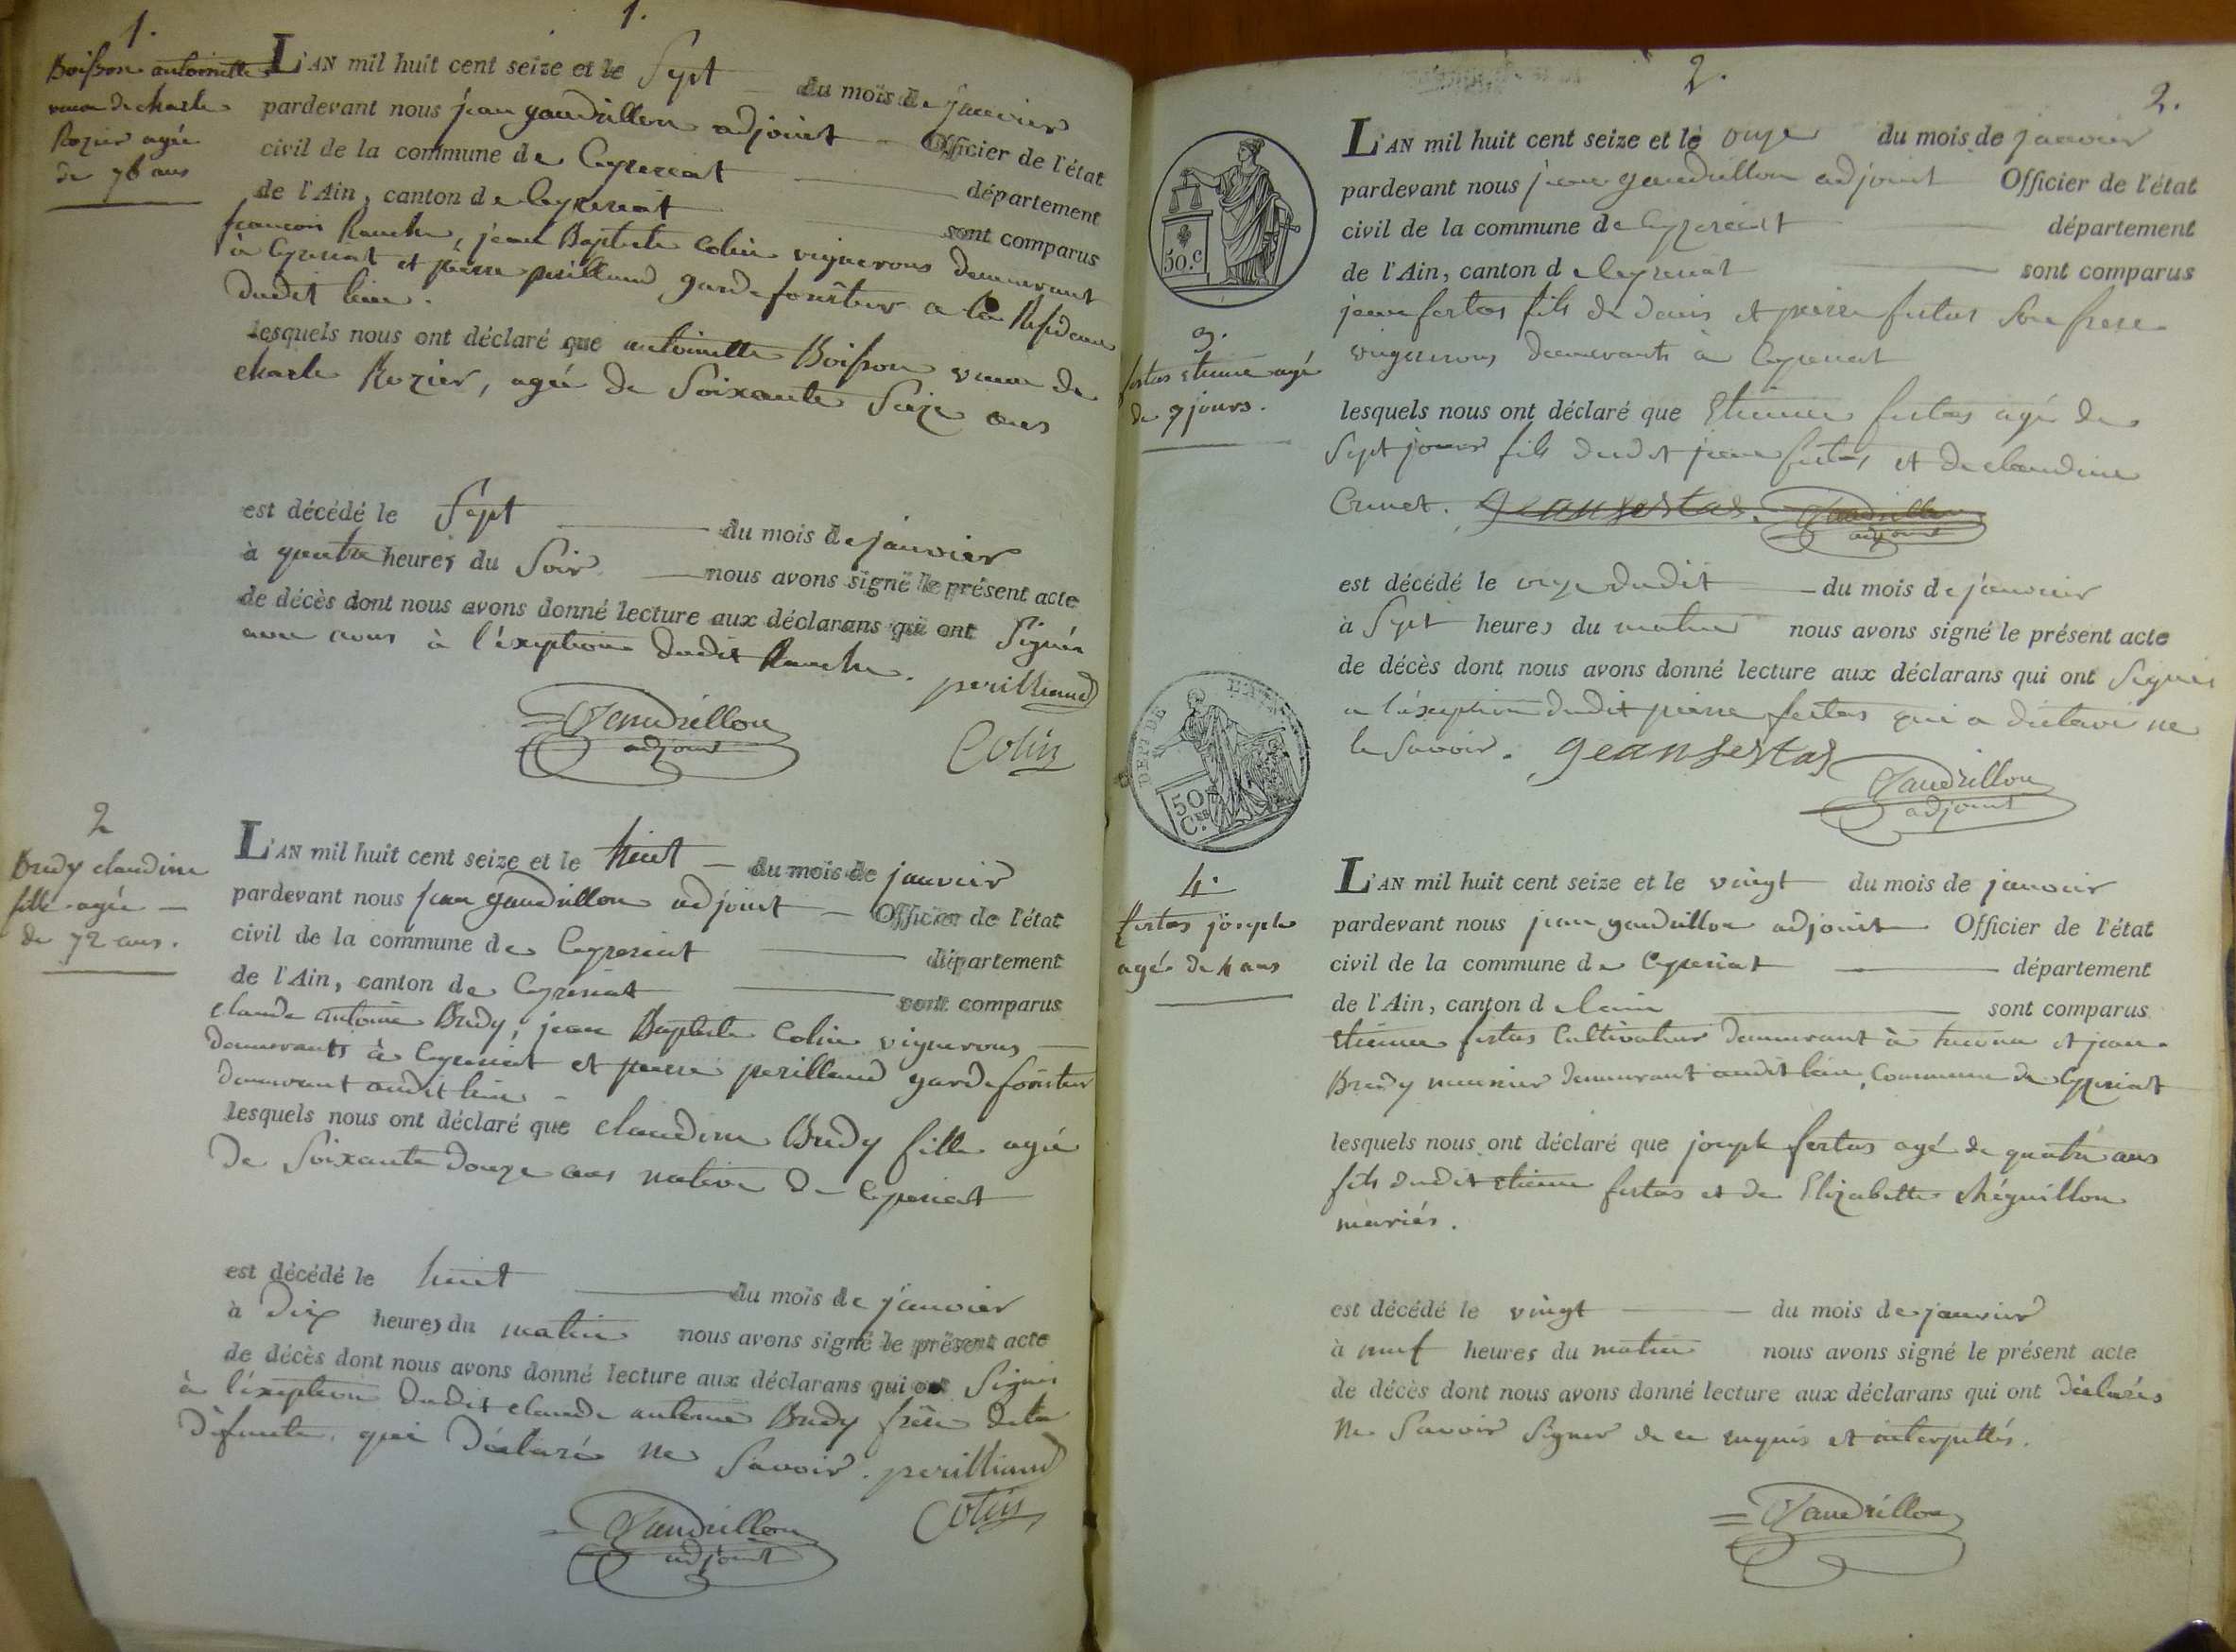 1.
1.
Boisson antoinette
veuve de charle
Rozier agée
de 76 ans
L'AN mil huit cent seize et le Sept du mois de janvier
pardevant nous jean gaudrillon adjoint Officier de l'état
civil de la commune de Ceyzeriat département
de l'Ain, canton de Ceyzeriat sont comparus
françois, jean Baptiste Colin vignerons demeurant
à Ceyzeriat et pierre perilliand garde forêtier a la Résidence
dudit lieu.
lesquels nous ont déclaré que antoinette Boisson veuve de
charle Rozier, agée de Soixante Seize ans
est décédé le Sept du mois de janvier
à quatre heures du Soir nous avons signé le présent acte
de décès dont nous avons donné lecture aux déclarans qui ont Signés
avec nous à l'éxeption dudit
perilliand
Gaudrillon
adjoint
Colin
2
Bredy claudine
fille agée
de 72 ans.
L'AN mil huit cent seize et le huit du mois de janvier
pardevant nous jean gaudrillon adjoint Officier de l'état
civil de la commune de Ceyzeriat département
de l'Ain, canton de Ceyzeriat sont comparus
claude antoine Bredy, jean Baptiste Colin vignerons
demeurants à Ceyzeriat et pierre perilliand garde forêtier
demeurant audit lieu
lesquels nous ont déclaré que claudine Bredy fille agée
de Soixante douze ans native de Ceyzeriat
est décédé le huit du mois de janvier
à dix heures du matin nous avons signé le présent acte
de décès dont nous avons donné lecture aux déclarans qui ont Signés
à l'éxeption dudit claude antoine Bredy frère de la
défunte, qui déclaré ne Savoir. perilliand
Gaudrillon
adjoint
Colin
2.
2.
50.c
3.
festas etienne agé
de 7 jours.
L'AN mil huit cent seize et le onze du mois de janvier
pardevant nous jean gaudrillon adjoint Officier de l'état
civil de la commune de Ceyzeriat département
de l'Ain, canton de Ceyzeriat sont comparus
jean festas fils de denis et pierre festas Son frere
vignerons demeurants à Ceyzeriat
lesquels nous ont déclaré que Etienne festas agé de
Sept jours fils dudit jean festas et de claudine
Crunet. Jean festas. Gaudrillon
adjoint
est décédé le onze dudit du mois de janvier
à Sept heures du matin nous avons signé le présent acte
de décès dont nous avons donné lecture aux déclarans qui ont Signés
a l'éxeption dudit pierre festas qui a déclaré ne
le Savoir. gean festas
Gaudrillon
adjoint
DEPT DE L'AIN
50
Cen.
4.
festas joseph
agé de 4 ans
L'AN mil huit cent seize et le vingt du mois de janvier
pardevant nous jean gaudrillon adjoint Officier de l'état
civil de la commune de Ceyzeriat département
de l'Ain, canton de lain sont comparus
etienne festas Cultivateur demeurant à et jean
Bredy meunier demeurant audit lieu, Commune de Ceyzeriat
lesquels nous ont déclaré que joseph festas agé de quatre ans
fils dudit etienne festas et de Elizabette
mariés.
est décédé le vingt du mois de janvier
à neuf heures du matin nous avons signé le présent acte
de décès dont nous avons donné lecture aux déclarans qui ont déclarés
ne Savoir Signer de ce requis et interpellés.
Gaudrillon